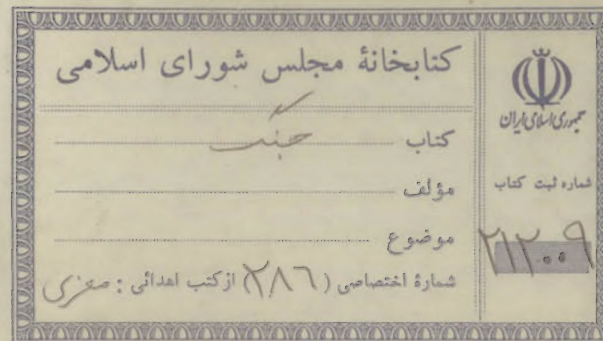 کتابخانهٔ مجلس شورای اسلامی
کتاب جنگ
مؤلف
موضوع
شمارهٔ اختصاصی (۲۸۶) از کتب اهدائی :
جمهوری اسلامی ایران
شماره ثبت کتاب
۲۱۲۰۰۹